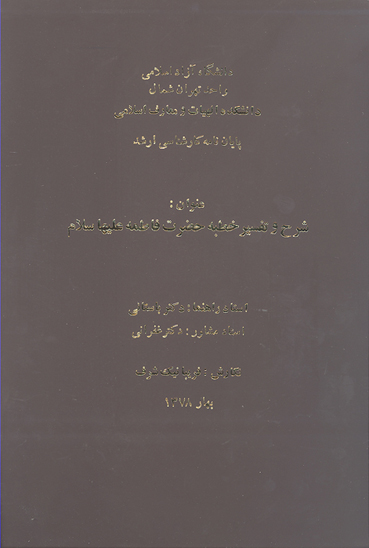 دانشگاه آزاد اسلامی
واحد تهران شمال
دانشکده الهیات و معارف اسلامی
پایان نامه کارشناسی ارشد
عنوان :
شرح و تفسیر خطبه حضرت فاطمه علیها سلام
استاد راهنما : دکتر باستانی
استاد مشاور : دکتر غفرانی
نگارش :
بهار ۱۳۷۸